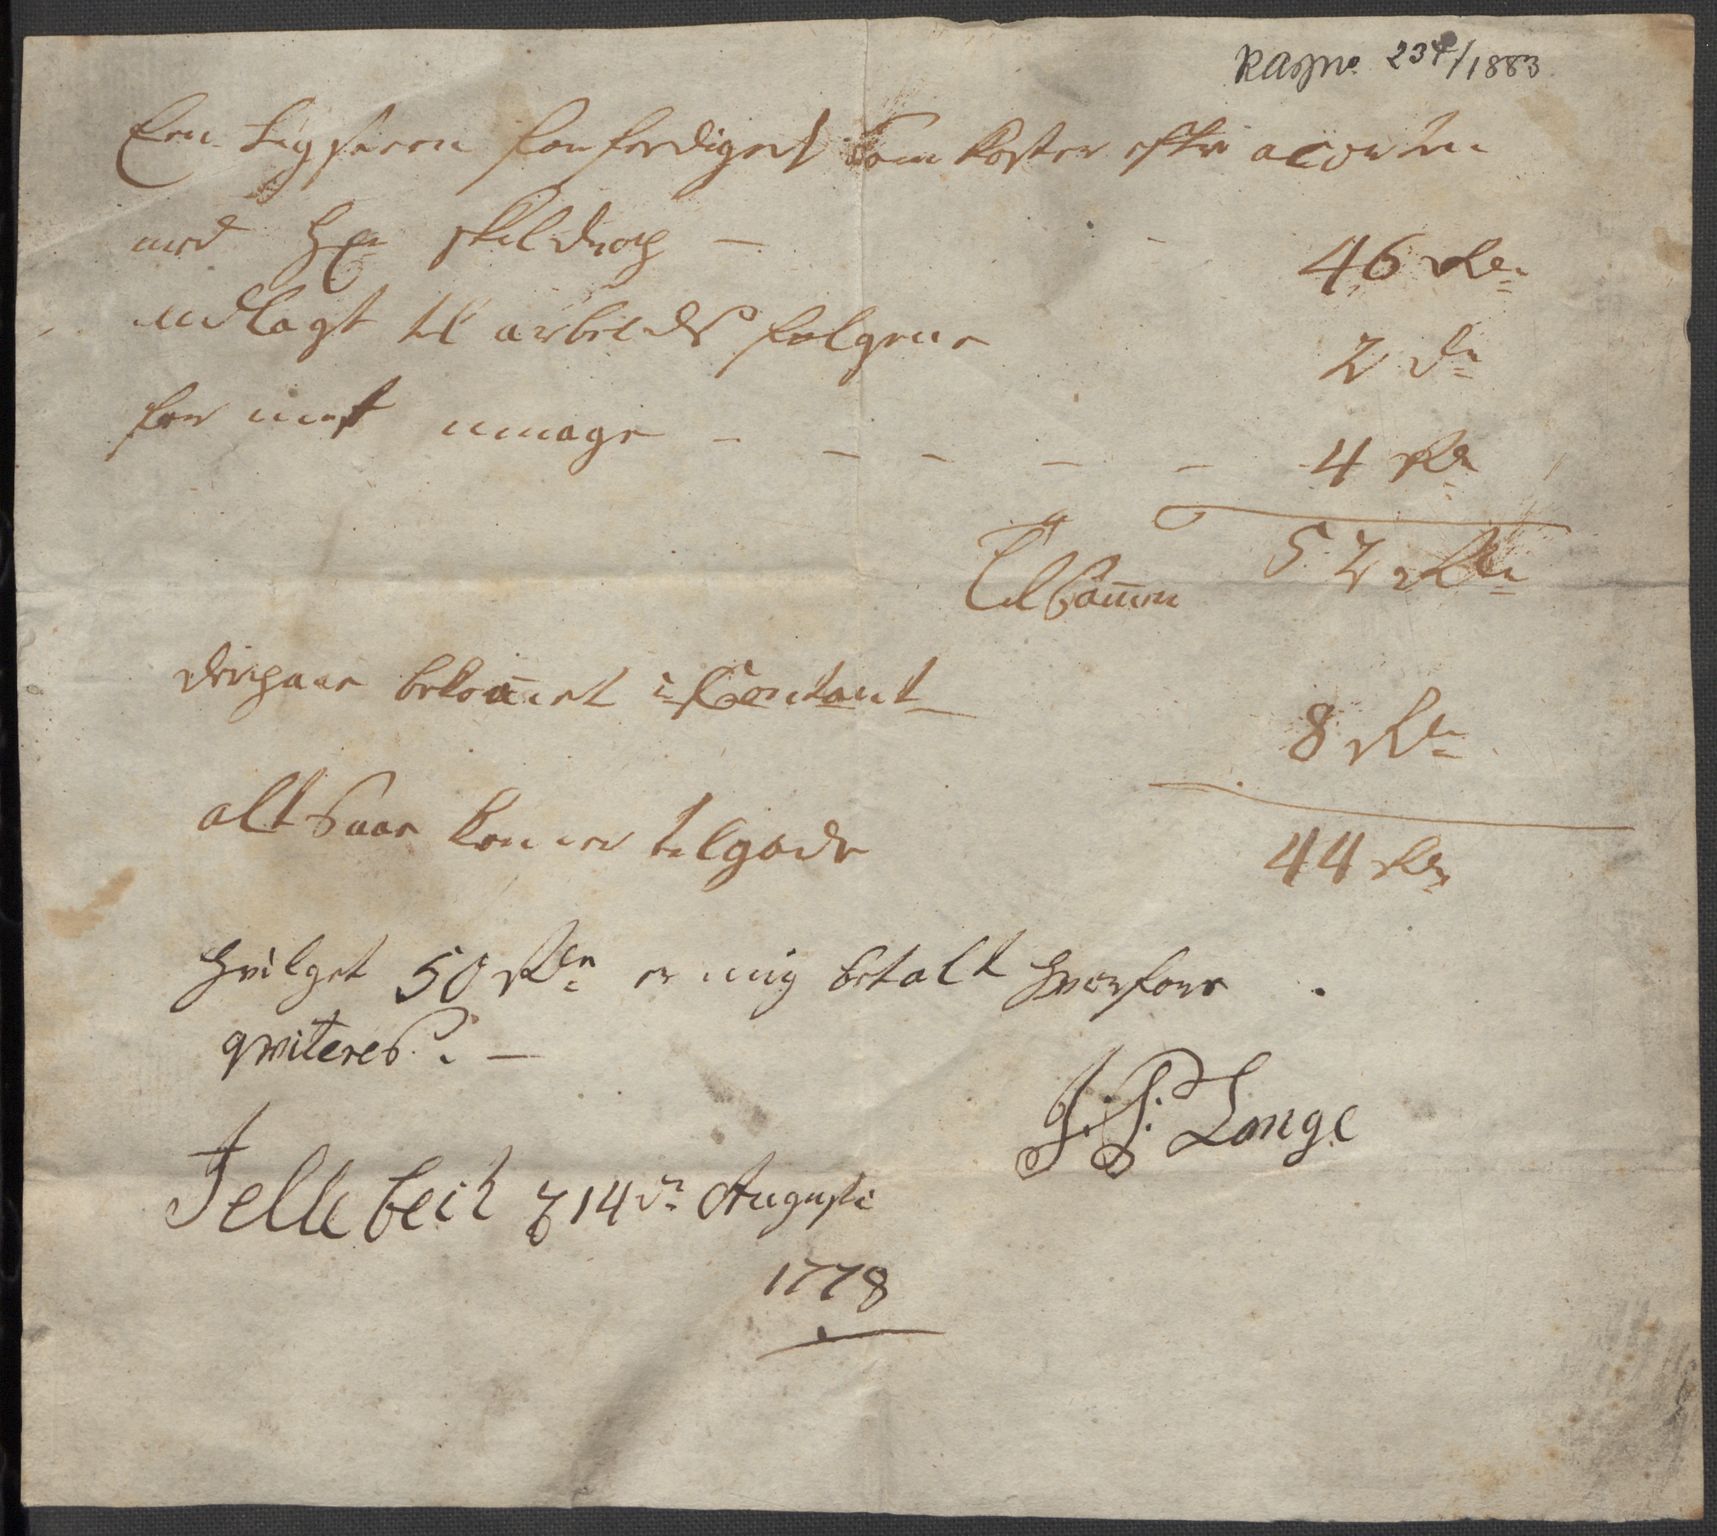 RAJNo. 234/1883
Een Ligsteen forferdiget som koster efter acorten
med Hr. Skildnoch — 46 Rdr
udlagt til arbeids folgene 2 dr
for mit umage — — — — — 4 Rdr
Tilsamen 52 Rdr
derpaae bekomet i Contant 8 Rdr
altsaae komer tilgode 44 Rdr
hvilget 50 Rdr er mig betalt hvorfore
qviteres. —
J. S. Lange
Jellebeck d 14de Augusti
1778